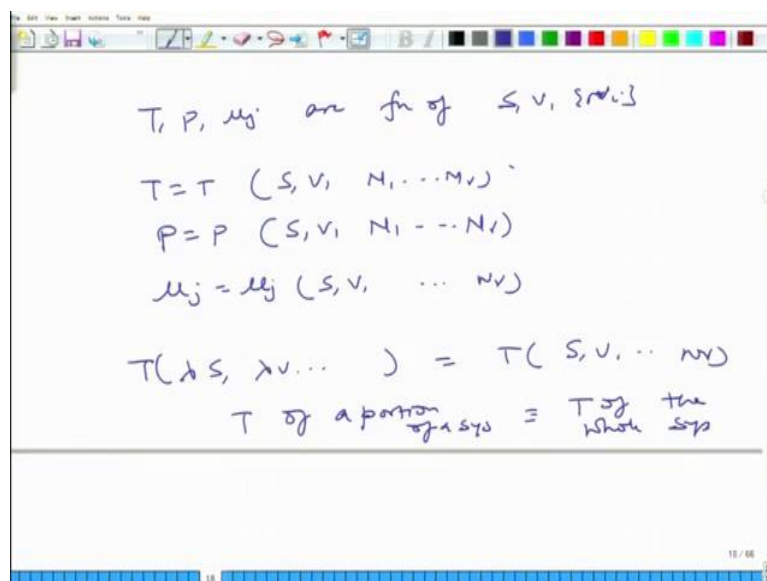 File Edit View Insert Actions Tools Help
T, P, μj are fn of S, V, {Ni}
T = T (S, V, N1 .... Nr)
P = P (S, V, N1 - - .. Nr)
μj = μj (S, V, ... Nr)
T(λS, λV... ) = T( S, V, .. Nr)
T of a portion of a sys ≡ T of the whole sys
18 / 66
18